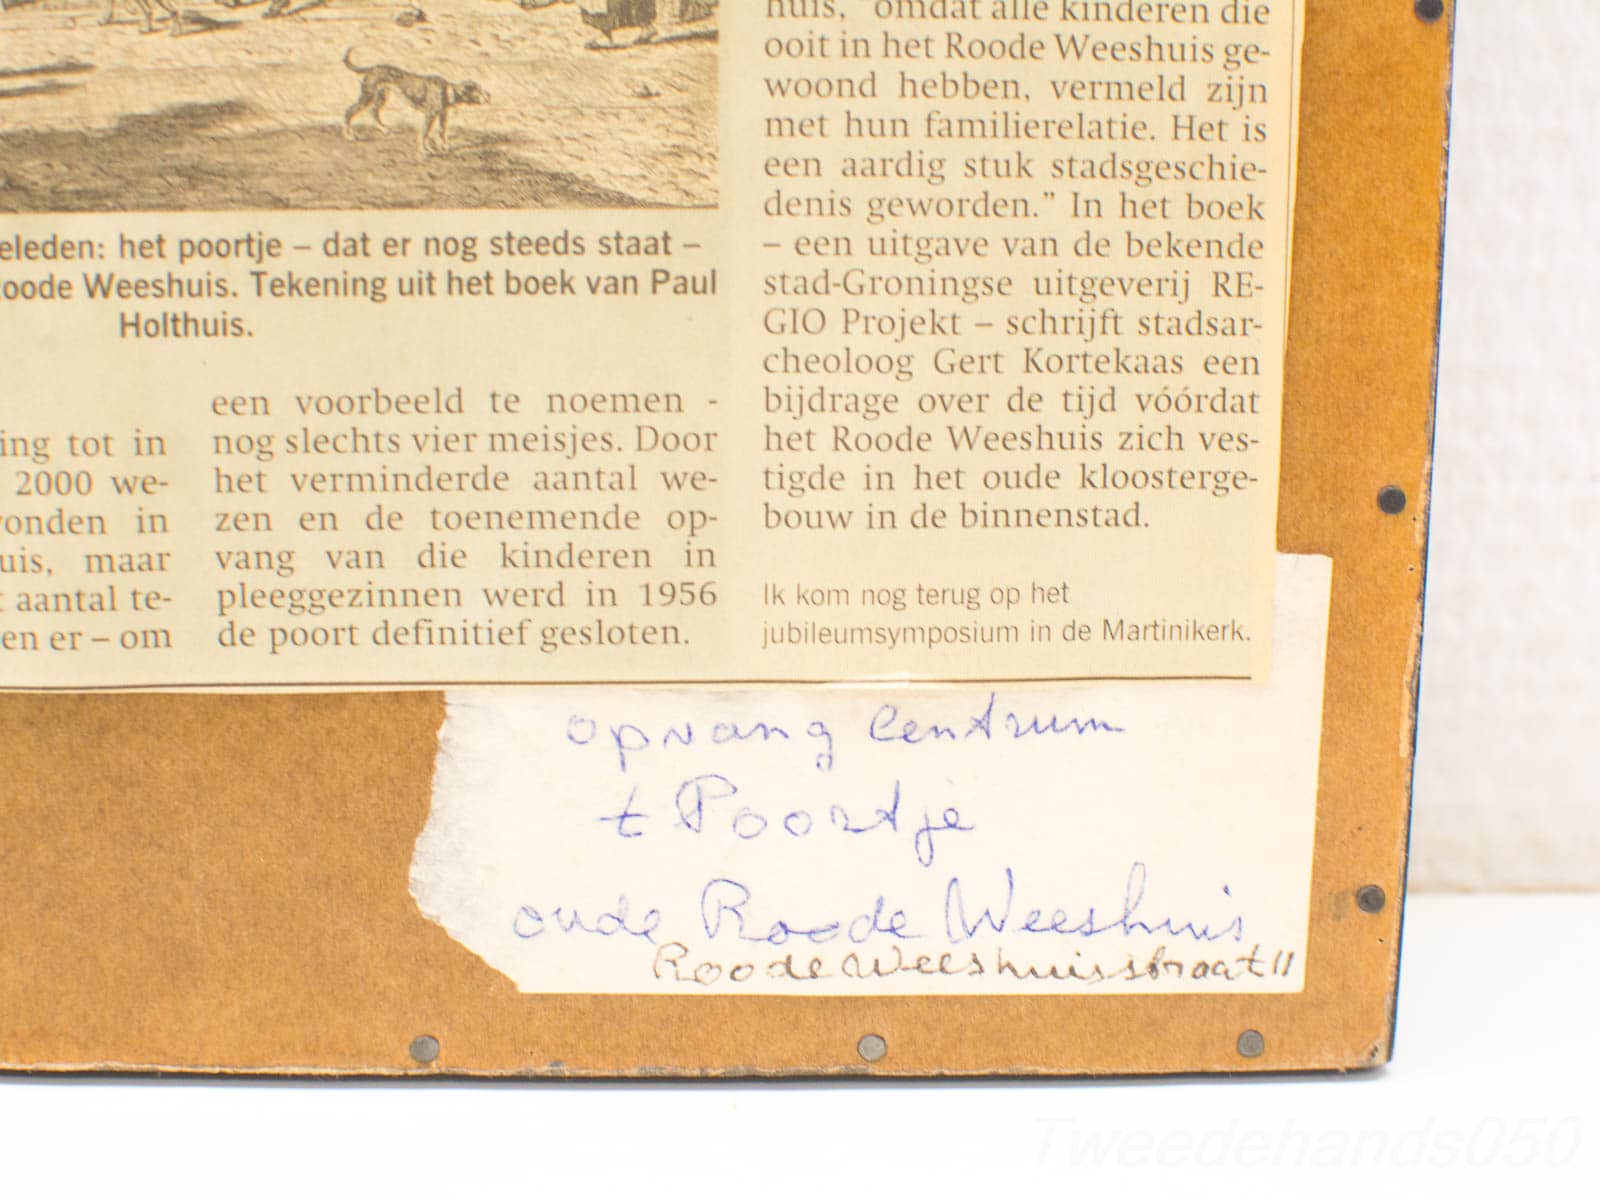 eleden: het poortje – dat er nog steeds staat –
oode Weeshuis. Tekening uit het boek van Paul
Holthuis.
ing tot in
2000 we-
onden in
uis, maar
aantal te-
en er – om
een voorbeeld te noemen -
nog slechts vier meisjes. Door
het verminderde aantal we-
zen en de toenemende op-
vang van die kinderen in
pleeggezinnen werd in 1956
de poort definitief gesloten.
huis, "omdat alle kinderen die
ooit in het Roode Weeshuis ge-
woond hebben, vermeld zijn
met hun familierelatie. Het is
een aardig stuk stadsgeschie-
denis geworden." In het boek
– een uitgave van de bekende
stad-Groningse uitgeverij RE-
GIO Projekt – schrijft stadsar-
cheoloog Gert Kortekaas een
bijdrage over de tijd vóórdat
het Roode Weeshuis zich ves-
tigde in het oude kloosterge-
bouw in de binnenstad.
Ik kom nog terug op het
jubileumsymposium in de Martinikerk.
opvang Centrum
t Poortje
oude Roode Weeshuis
Roode Weeshuisstraat 11
Tweedehands050